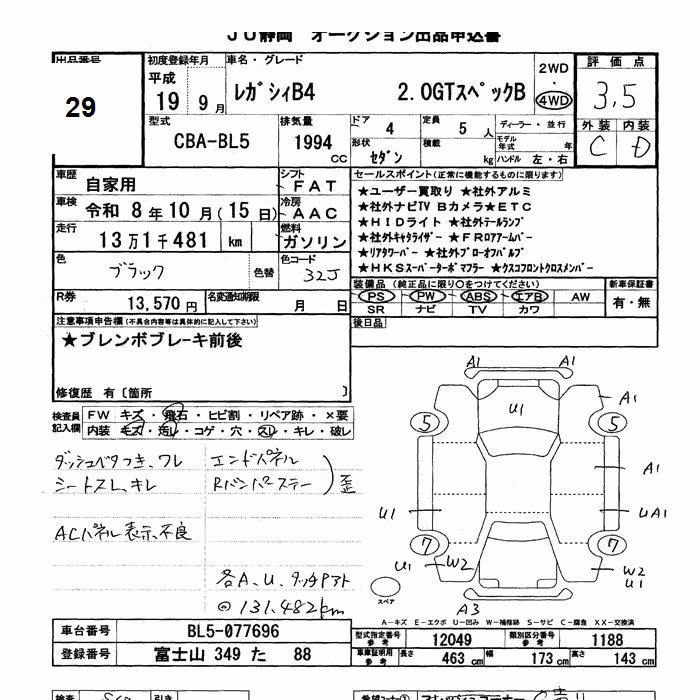 JU静岡 オークション出品申込書
出品番号
29
初度登録年月
平成
19 9月
車名・グレード
レガシィB4 2.0GTスペックB
2WD
・
4WD
評価点
3.5
型式
CBA-BL5
排気量
1994
cc
ドア
4
定員
5 人
形状
セダン
積載
kg
ディーラー・並行
モデル年式 年
ハンドル 左・右
外装 内装
C D
車歴
自家用
シフト
FAT
車検
令和 8年10月(15日)
冷房
AAC
走行
13万1千481 km
燃料
ガソリン
色
ブラック
色替
色コード
32J
R券
13,570円
名変通知期限
月 日
セールスポイント(正常に機能するものに限ります)
★ユーザー買取り ★社外アルミ
★社外ナビTV Bカメラ★ETC
★HIDライト ★社外テールランプ
★社外キャタライザー ★FRロアアームバー
★リアタワーバー ★社外ブローオフバルブ
★HKSスーパーターボマフラー ★クスコフロントクロスメンバー
装備品(純正品に限り○をつけてください)
PS PW ABS エアB AW
SR ナビ TV カワ
新車保証書
有・無
後日品
注意事項申告欄(不具合内容等は具体的に記入して下さい)
★ブレンボブレーキ前後
修復歴 有〔箇所 〕
検査員
記入欄
FW キズ・飛石・ヒビ割・リペア跡・×要
内装 キズ・汚レ・コゲ・穴・スレ・キレ・破レ
ダッシュベタつき、ワレ
シートスレ、キレ
ACパネル表示不良
エンドパネル
Rバンパステー
歪
各A、U、タッチアト
◎131.482km
A1 A1
U1
A1
5 5
A1
U1
UA1
7 7
U1 W2
W2
U1
スペア
A3
A-キズ E-エクボ U-凹み W-補修跡 S-サビ C-腐食 XX-交換済
車台番号
BL5-077696
登録番号
富士山 349 た 88
型式指定番号
参考
12049
類別区分番号
参考
1188
車庫証明用
参考
長さ
463 cm
幅
173 cm
高さ
143 cm